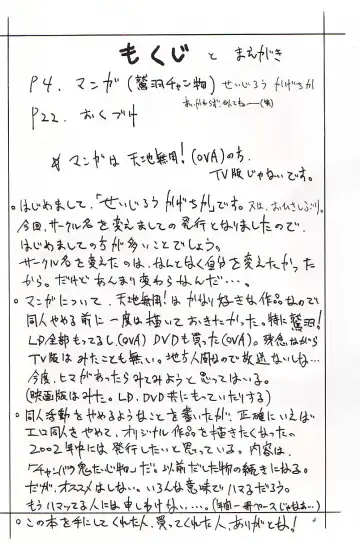 もくじ と まえがき
P4. マンガ(鷲羽チャン物) せいじろう かげちか
P22. おくづけ
マンガは 天地無用!(OVA)のち.
TV版じゃないです。
。はじめまして、「せいじろう かげちか」です。又は、おひさしぶり。
今回、サークル名を変えましての発行となりましたので、
はじめましての方が多いことでしょう。
サークル名を変えたのは、なんとなく自分を変えたかった
から。だけどあんまり変わらなんだ…。
。マンガについて、天地無用!はかなり好きな作品なので
同人やめる前に一度は描いておきたかった。特に鷲羽!
LD全部もってるし(OVA)DVDも買った(OVA)。残念ながら
TV版はみたことも無い。地方人間なので放送ないしな…
今度、ヒマがあったらみてみようと思ってはいる。
(映画版はみた。LD、DVD共にもっていたりする)
。同人活動をやめるようなことを書いたが、正確にいえば
エロ同人をやめて、オリジナル作品を描きたくなった。
2002年中には発行したいと思っている。内容は、
「チャンバラ鬼た心物」だ。以前だした物の続きになる。
だが、オススメはしない。いろんな意味でハマるだろう。
もうハマッてる人には申しわけない…。(年間一冊ペースじゃなぁ…)
。この本を手にしてくれた人、買ってくれた人、ありがとな!